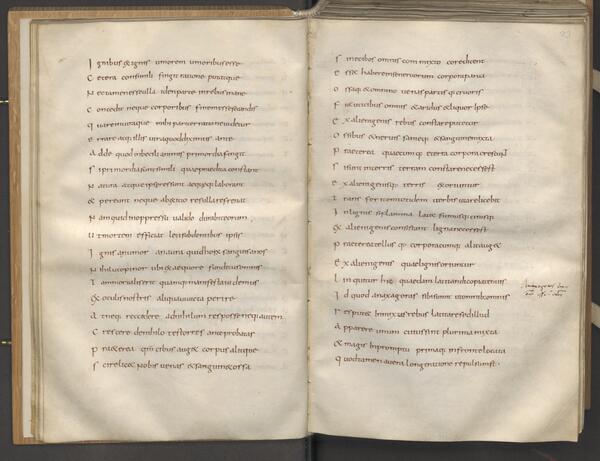 Ignibus & ignis umorem umoribus esse
Cetera consimili fingit ratione putatque
Nectamen esse ulla idem parte in rebus inane
Concedit neque corporibus finem esse secandis
Quare in utraque mihi pariter ratione videtur
Errare atq; illis utraquod diximus ante
Adde quod inbecilla nimis primordia fingit
Si primordia sunt simili quae praedita constant
Natura atque ipse res sunt aeque q; laborant
& pereunt neque ab exitio res ulla refrenat
Nam quid in oppressu valido durabit eorum
Ut mortem efficiat leti sub dentibus ipsis
Ignis an umor an aura quid horum sanguis an os
Nihil ut opinor ubi ex aequo res funditus omnis
Tam mortalis erit quam quae manifesta videmus
Ex oculis nostris aliqua vi victa perire
At neq; reccidere ad nihilum res posse neq; autem
Crescere de nihilo testor res ante probatas
Praeterea qm cibus auget corpus alitque
Scire licet nobis venas & sanguem & ossa
93
Sive cibos omnis commixto corpore dicent
Esse & habere in se nervorum corpora parva
Ossaq; & omnino venas partisq; cruoris
Fiet uti cibus omnis & aridus & liquor ipse
Ex alienigenis rebus constare putetur
Ossibus & nervis sanieq; & sanguine mixta
Praeterea quaecumq; e terra corpora crescunt
Si sunt in terris terram constare necessest
Ex alienigenis q; terris exoriuntur
Transfer item totidem verbis utare licebit
In lignis si flamma latet fumusq; cinisq;
Ex alienigenis consistant ligna necessest
Praeterea tellus q; corpora cumq; alit auget
Ex alienigenis quae lignis oriuntur
Linquitur hic quaedam latitandi copia tenuis
Id quod anaxagoras sibi sumit ut omnibus omnis
Res putet inmixtas rebus latitare sed illud
Apparere unum cuius sint plurima mixta
& magis in promptu primaq; in fronte locata
Quod tamen a vera longe ratione repulsumst